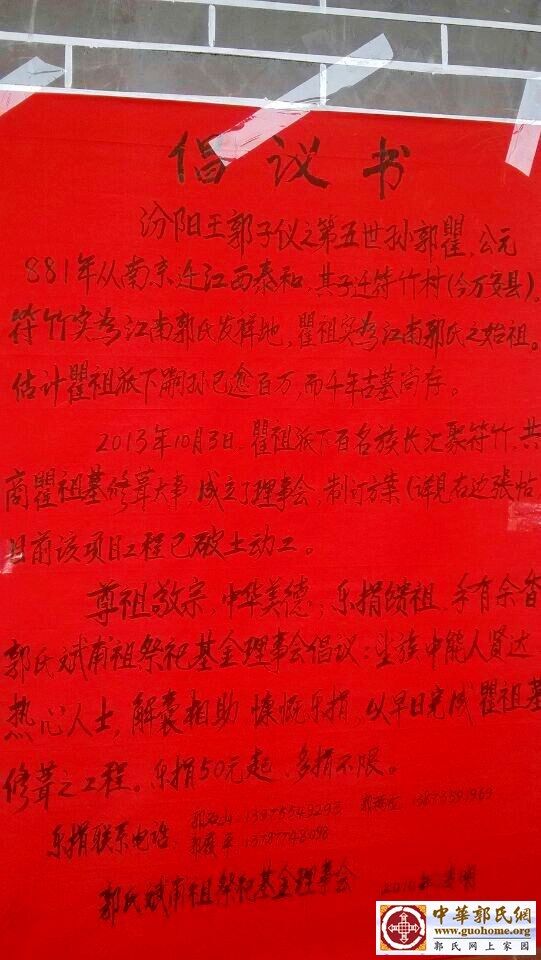 倡议书
汾阳王郭子仪之第五世孙郭瞿,公元
881年从南京迁江西泰和,其子迁符竹村(今万安县)。
符竹实为江南郭氏发祥地,瞿祖实为江南郭氏之始祖。
估计瞿祖派下嗣孙已愈百万,而千年古墓尚存。
2013年10月3日,瞿祖派下百名族长汇聚符竹,共
商瞿祖墓修葺大事,成立了理事会,制订方案(详见右边张帖
目前该项目工程已破土动工。
尊祖敬宗,中华美德,乐捐缋祖,手有余香
郭氏斌甫祖祭祀基金理事会倡议:望族中能人贤达
热心人士,解囊相助,慷慨乐捐,以早日完成瞿祖墓
修葺之工程。乐捐50元起,多捐不限。
乐捐联系电话:
郭氏斌甫祖祭祀基金理事会
中華郭氏網
www.guohome.org
郭氏网上家园